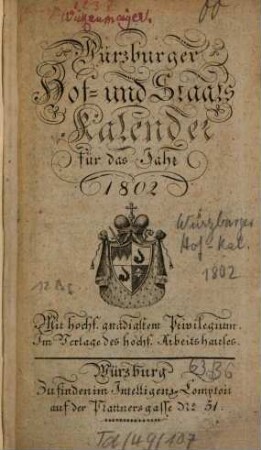 Würzburger
Hof= und Staats
Kalender
für das Jahr
1802
Würzburger
Hof-Kal.
1802
12.B6
Mit hochf. gnädigstem Privilegium.
Im Verlage des hochf. Arbeitshauses.
Würzburg
Zu finden im Intelligenz=Comptoir
auf der Plattnersgasse No 51.